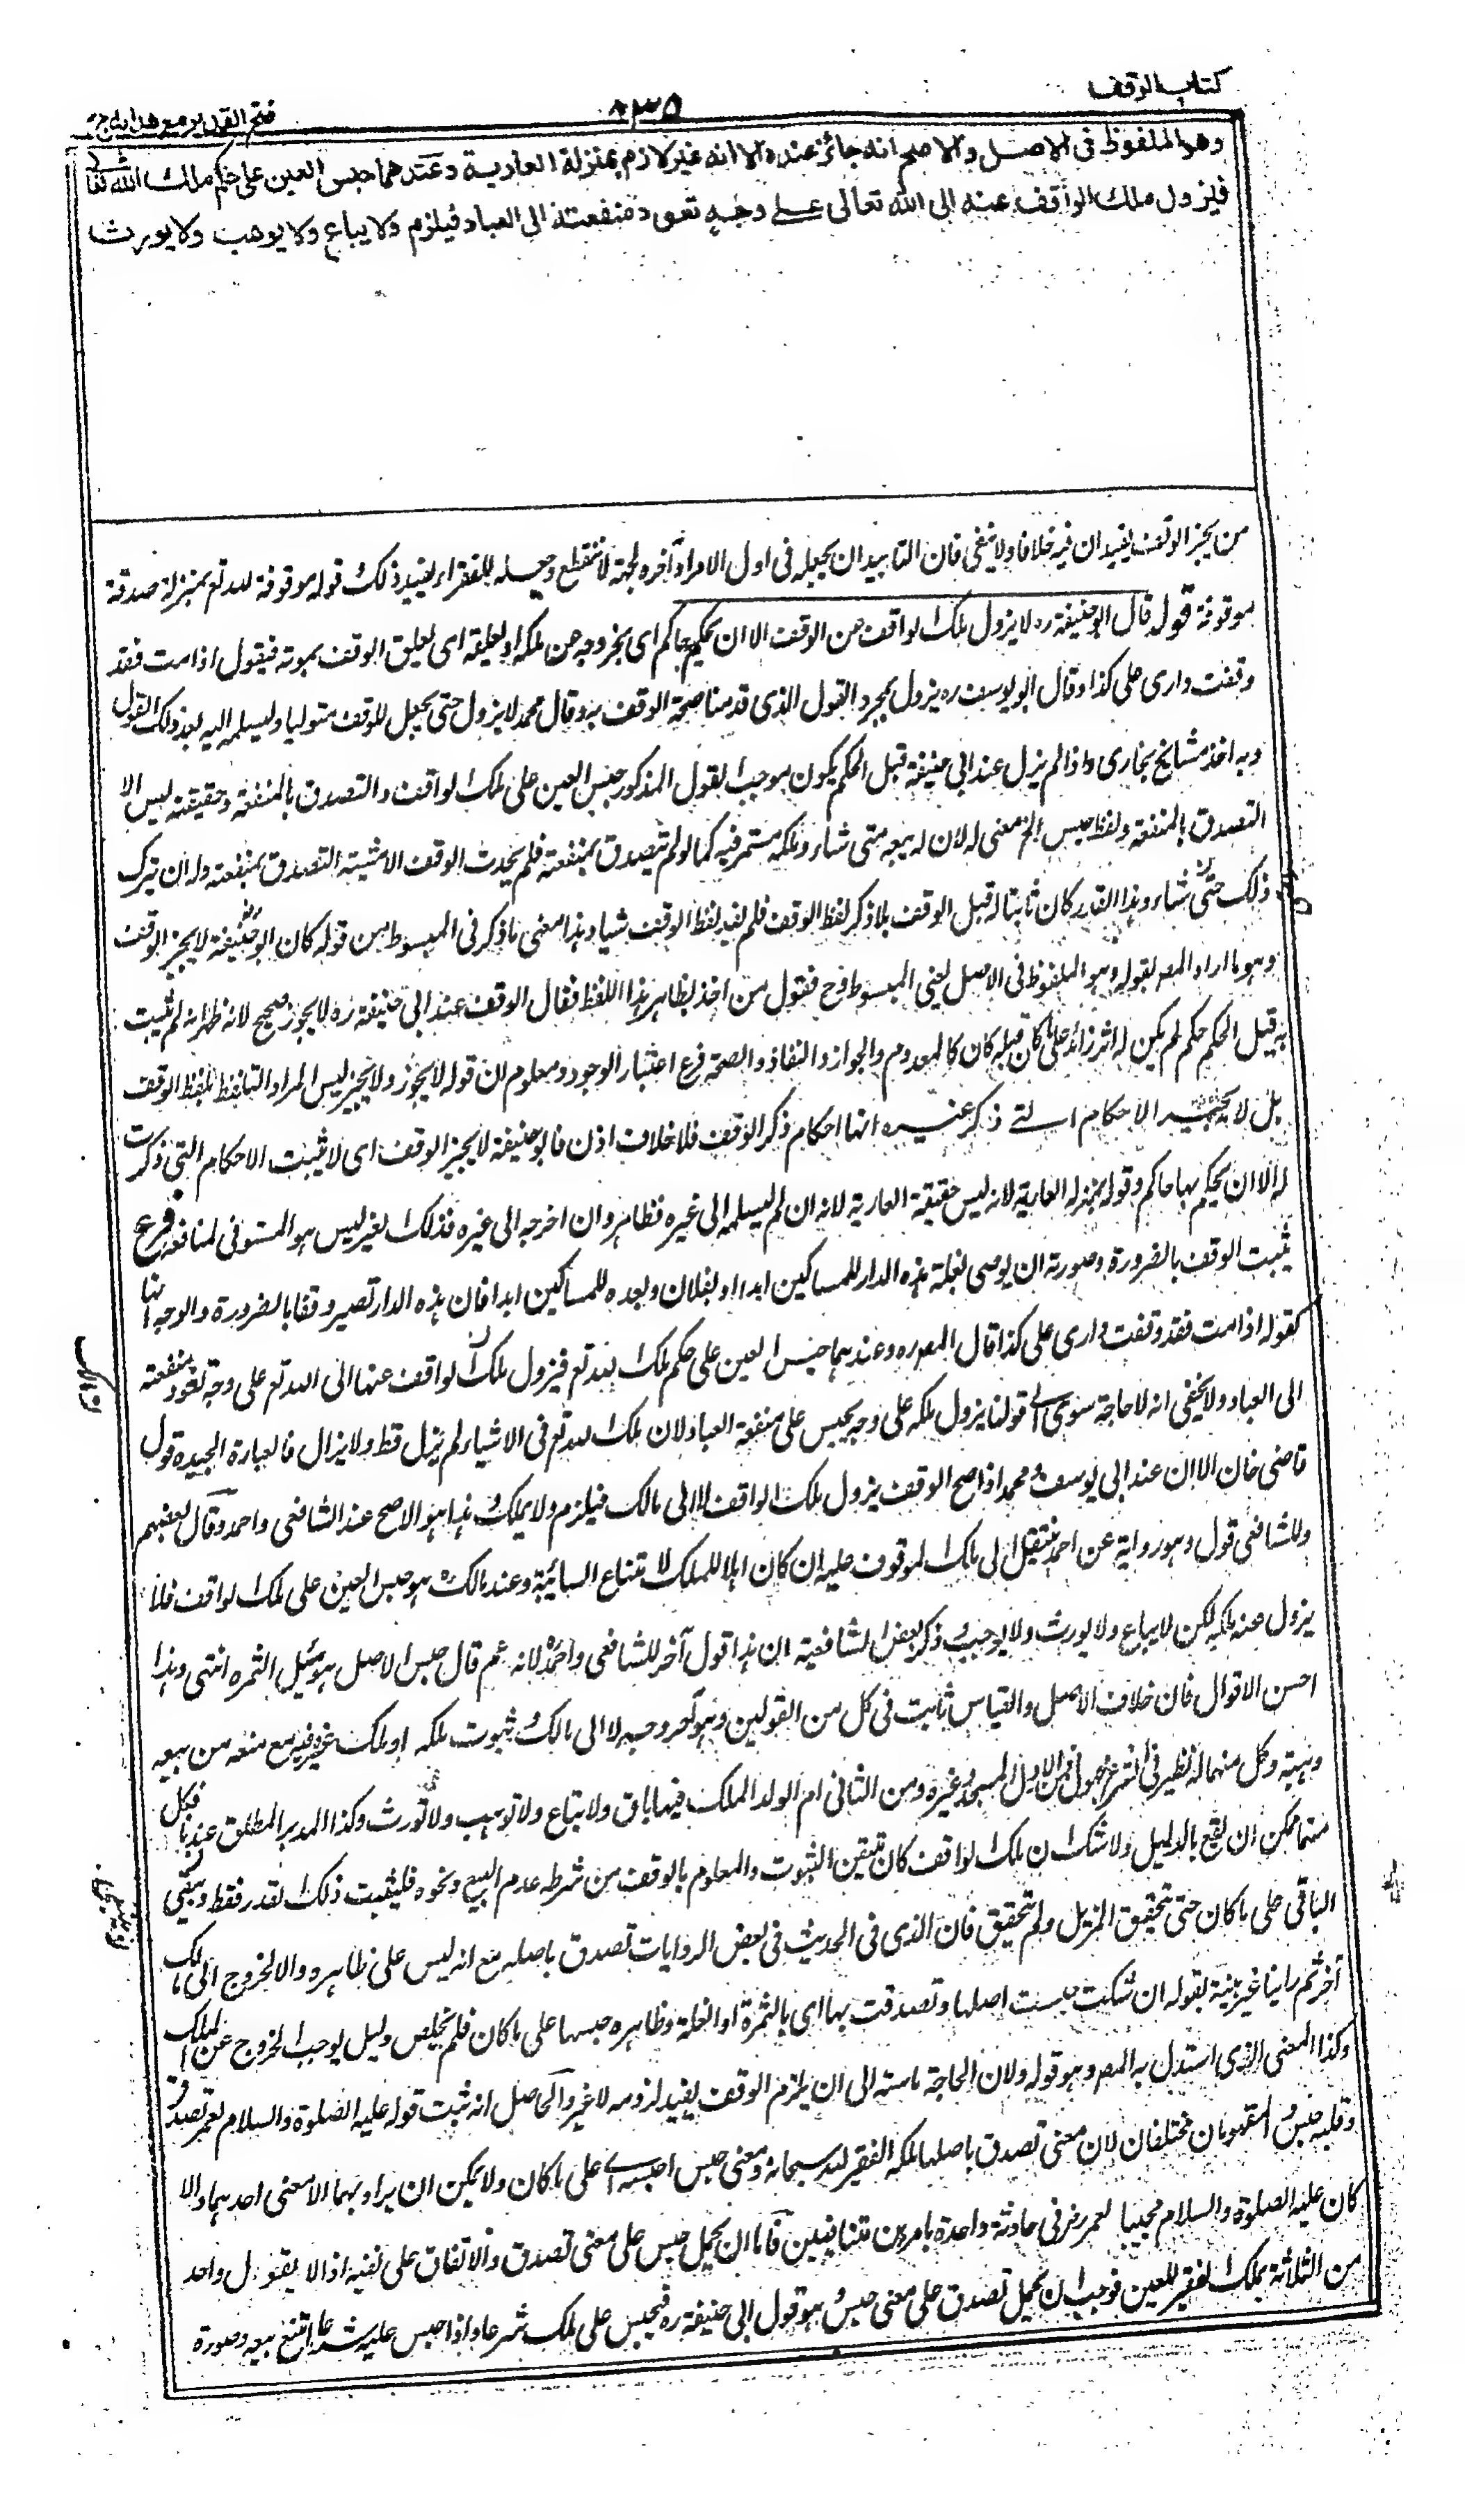 كتاب الوقف
٨٣٥
فتح القدير مع هداية ج٢
وهو الملفوظ في الاصل والاصح انه جائز عنده الا انه غير لازم بمنزلة العارية وعندهما حبس العين على حكم ملك الله تعالى
فيزول ملك الواقف عنه الى الله تعالى على وجه تعود منفعته الى العباد فيلزم ولا يباع ولا يوهب ولا يورث
من يجيز الوقف يفيد ان فيه خلافا ولا يخفى فان التابيد ان يجعله في اول الامر او آخره لجهة لا تنقطع وجعله للفقراء يفيد ذلك قوله موقوفة لله تع بمنزلة صدقة
موقوفة قوله قال ابو حنيفة ره لا يزول ملك الواقف عن الوقف الا ان يحكم به حاكم اى بخروجه عن ملكه او يعلقه اى يعلق الوقف بموته فيقول اذا مت فقد
وقفت دارى على كذا وقال ابو يوسف ره يزول بمجرد القول الذى قدمنا صحة الوقف به وقال محمد لا يزول حتى يجعل للوقف متوليا ويسلمه اليه بعد ذلك القول
وبه اخذ مشايخ بخارى واذا لم يزل عند ابى حنيفة قبل الحكم يكون موجب القول المذكور حبس العين على ملك الواقف والتصدق بالمنفعة وحقيقته ليس الا
التصدق بالمنفعة ولفظ حبس الخ معنى له لان له بيعه متى شاء وملكه مستمر فيه كما لو لم يتصدق بمنفعته فلم يحدث الوقف الا مشية التصدق بمنفعته وله ان يترك
ذلك متى شاء وهذا القدر كان ثابتا له قبل الوقف بلا ذكر لفظ الوقف فلم يفد لفظ الوقف شيا وهذا معنى ما ذكر في المبسوط من قوله كان ابو حنيفة لا يجيز الوقف
وهو ما اراد المصه بقوله وهو الملفوظ في الاصل يعنى المبسوط وح فقول من اخذ بظاهر هذا اللفظ فقال الوقف عند ابى حنيفة ره لا يجوز صحيح لانه ظهر انه لم يثبت
به قبل الحكم حكم لم يكن له اثر زائد على ما كان قبله كان كالمعدوم والجواز والنفاذ والصحة فرع اعتبار الوجود ومعلوم ان قوله لا يجوز ولا يجيز ليس المراد التلفظ بلفظ الوقف
بل لا يجيز الاحكام التى ذكر غيره انها احكام ذكر الوقف فلا خلاف اذن فابو حنيفة لا يجيز الوقف اى لا يثبت الاحكام التى ذكرت
له الا ان يحكم بها حاكم وقوله بمنزلة العارية لانه ليس حقيقة العارية لانه ان لم يسلمه الى غيره فظاهر وان اخرجه الى غيره فذلك الغير ليس هو المستوفى لمنافعه فرع
يثبت الوقف بالضرورة وصورته ان يوصى بغلة هذه الدار للمساكين ابدا او لفلان وبعده للمساكين ابدا فان هذه الدار تصير وقفا بالضرورة والوجه انها
كقوله اذا مت فقد وقفت دارى على كذا قال المصره وعندهما حبس العين على حكم ملك الله تع فيزول ملك الواقف عنها الى الله تع على وجه تعود منفعته
الى العباد ولا يخفى انه لا حاجة سوى الى قولنا يزول ملكه على وجه يحبس على منفعة العباد لان ملك الله تع في الاشياء لم يزل قط ولا يزال فالعبارة الجيدة قول
قاضى خان الا ان عند ابى يوسف ومحمد اذا صح الوقف يزول ملك الواقف لا الى مالك فيلزم ولا يملك وهذا هو الاصح عند الشافعى واحمد وقال بعضهم
وللشافعى قول وهو رواية عن احمد ينتقل الى ملك الموقوف عليه ان كان اهلا للملك لامتناع السائبة وعند مالك هو حبس العين على ملك الواقف فلا
يزول عنه ملكه لكن لا يباع ولا يورث ولا يوهب وذكر بعض الشافعية ان هذا قول آخر للشافعى واحمد لانه عم قال حبس الاصل وسبل الثمرة انتهى وهذا
احسن الاقوال فان خلاف الاصل والقياس ثابت في كل من القولين وهو خروجه لا الى مالك وثبوت ملكه او ملك غيره فيه مع منعه من بيعه
وهبته وكل منهما له نظير في الشرع فمن الاول المسجد وغيره ومن الثانى ام الولد الملك فيها باق ولا تباع ولا توهب ولا تورث وكذا المدبر المطلق عندنا فكل
منهما ممكن ان يقع بالدليل ولا شك ان ملك الواقف كان متيقن الثبوت والمعلوم بالوقف من شرطه عدم البيع ونحوه فليثبت ذلك القدر فقط ويبقى
الباقى على ما كان حتى يتحقق المزيل ولم يتحقق فان الذى في الحديث في بعض الروايات تصدق باصله مع انه ليس على ظاهره والا لخرج الى مالك
آخر ثم راينا غير بينه بقوله ان شئت حبست اصلها وتصدقت بها اى بالثمرة او الغلة وظاهره حبسها على ما كان فلم يخلص دليل يوجب الخروج عن الملك
وكذا المعنى الذى استدل به المصه وهو قوله ولان الحاجة ماسة الى ان يلزم الوقف يفيد لزومه لا غير والحاصل انه ثبت قوله عليه الصلوة والسلام لعمر تصدق
وقلبه حبس والمفهومان مختلفان لان معنى تصدق باصلها ملكه الفقير لله سبحانه ومعنى حبس احبسه اى على ما كان ولا يمكن ان يراد بهما الا معنى احدهما والا
كان عليه الصلوة والسلام مجيبا لعمر رضه في حادثة واحدة بامرين متنافيين فاما ان يحمل حبس على معنى تصدق والاتفاق على نفيه اذ لا يقول واحد
من الثلاثة بملك الفقير للعين فوجب ان يحمل تصدق على معنى حبس وهو قول ابى حنيفة ره فيحبس على ملك شرعا واذا حبس عليه شرعا امتنع بيعه وصورة